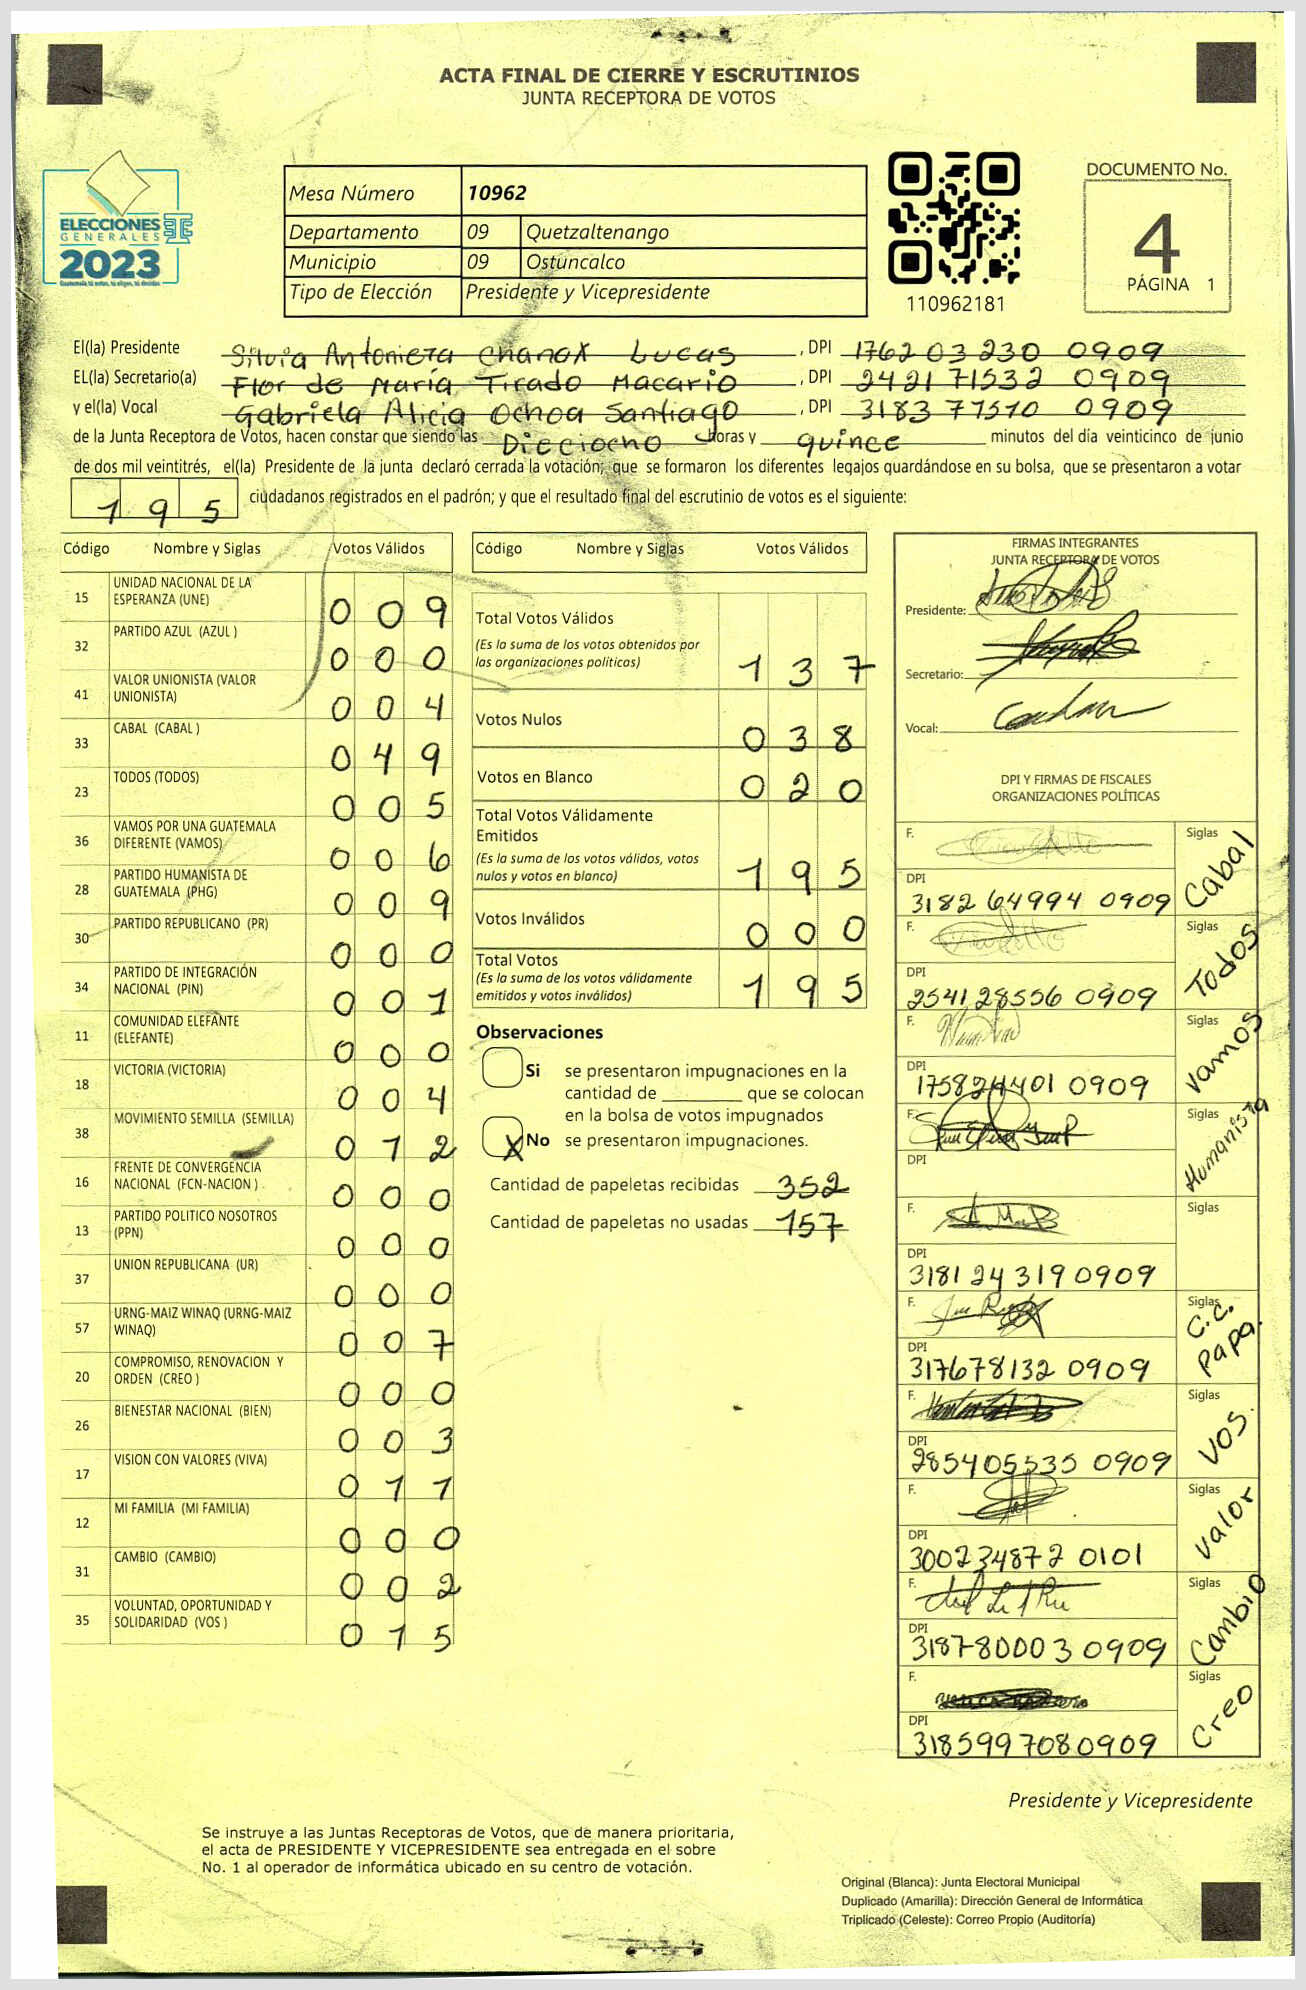 ACTA FINAL DE CIERRE Y ESCRUTINIOS
JUNTA RECEPTORA DE VOTOS
ELECCIONES
GENERALES
2023
Mesa Número 10962
Departamento 09 Quetzaltenango
Municipio 09 Ostuncalco
Tipo de Elección Presidente y Vicepresidente
110962181
DOCUMENTO No.
4
PÁGINA 1
El(la) Presidente Silvia Antonieta Chanax Lucas, DPI 1762 03 230 0909
EL(la) Secretario(a) Flor de María Tirado Macario, DPI 2421 71532 0909
y el(la) Vocal Gabriela Alicia Ochoa Santiago, DPI 3183 77570 0909
de la Junta Receptora de Votos, hacen constar que siendo las Dieciocho horas y quince minutos del día veinticinco de junio
de dos mil veintitrés, el(la) Presidente de la junta declaró cerrada la votación; que se formaron los diferentes legajos guardándose en su bolsa, que se presentaron a votar
195 ciudadanos registrados en el padrón; y que el resultado final del escrutinio de votos es el siguiente:
Código Nombre y Siglas Votos Válidos
15 UNIDAD NACIONAL DE LA ESPERANZA (UNE) 009
32 PARTIDO AZUL (AZUL ) 000
41 VALOR UNIONISTA (VALOR UNIONISTA) 004
33 CABAL (CABAL ) 049
23 TODOS (TODOS) 005
36 VAMOS POR UNA GUATEMALA DIFERENTE (VAMOS) 006
28 PARTIDO HUMANISTA DE GUATEMALA (PHG) 009
30 PARTIDO REPUBLICANO (PR) 000
34 PARTIDO DE INTEGRACIÓN NACIONAL (PIN) 001
11 COMUNIDAD ELEFANTE (ELEFANTE) 000
18 VICTORIA (VICTORIA) 004
38 MOVIMIENTO SEMILLA (SEMILLA) 012
16 FRENTE DE CONVERGENCIA NACIONAL (FCN-NACION ) 000
13 PARTIDO POLITICO NOSOTROS (PPN) 000
37 UNION REPUBLICANA (UR) 000
57 URNG-MAIZ WINAQ (URNG-MAIZ WINAQ) 007
20 COMPROMISO, RENOVACION Y ORDEN (CREO ) 000
26 BIENESTAR NACIONAL (BIEN) 003
17 VISION CON VALORES (VIVA) 011
12 MI FAMILIA (MI FAMILIA) 000
31 CAMBIO (CAMBIO) 002
35 VOLUNTAD, OPORTUNIDAD Y SOLIDARIDAD (VOS ) 015
Código Nombre y Siglas Votos Válidos
Total Votos Válidos
(Es la suma de los votos obtenidos por
las organizaciones políticas) 137
Votos Nulos 038
Votos en Blanco 020
Total Votos Válidamente
Emitidos
(Es la suma de los votos válidos, votos
nulos y votos en blanco) 195
Votos Inválidos 000
Total Votos
(Es la suma de los votos válidamente
emitidos y votos inválidos) 195
Observaciones
Si se presentaron impugnaciones en la
cantidad de ________ que se colocan
en la bolsa de votos impugnados
X No se presentaron impugnaciones.
Cantidad de papeletas recibidas 352
Cantidad de papeletas no usadas 157
FIRMAS INTEGRANTES
JUNTA RECEPTORA DE VOTOS
Presidente:
Secretario:
Vocal:
DPI Y FIRMAS DE FISCALES
ORGANIZACIONES POLÍTICAS
F. Siglas Cabal
DPI 3182 64994 0909
F. Siglas Todos
DPI 2541 28556 0909
F. Siglas Vamos
DPI 175824401 0909
F. Siglas Humanista
DPI
F. Siglas
DPI 3181 24 319 0909
F. Siglas C.C. Papa.
DPI 317678132 0909
F. Siglas VOS.
DPI 285405535 0909
F. Siglas Valor
DPI 300234872 0101
F. Siglas Cambio
DPI 318780003 0909
F. Siglas Creo
DPI 318599708 0909
Presidente y Vicepresidente
Se instruye a las Juntas Receptoras de Votos, que de manera prioritaria,
el acta de PRESIDENTE Y VICEPRESIDENTE sea entregada en el sobre
No. 1 al operador de informática ubicado en su centro de votación.
Original (Blanca): Junta Electoral Municipal
Duplicado (Amarilla): Dirección General de Informática
Triplicado (Celeste): Correo Propio (Auditoría)